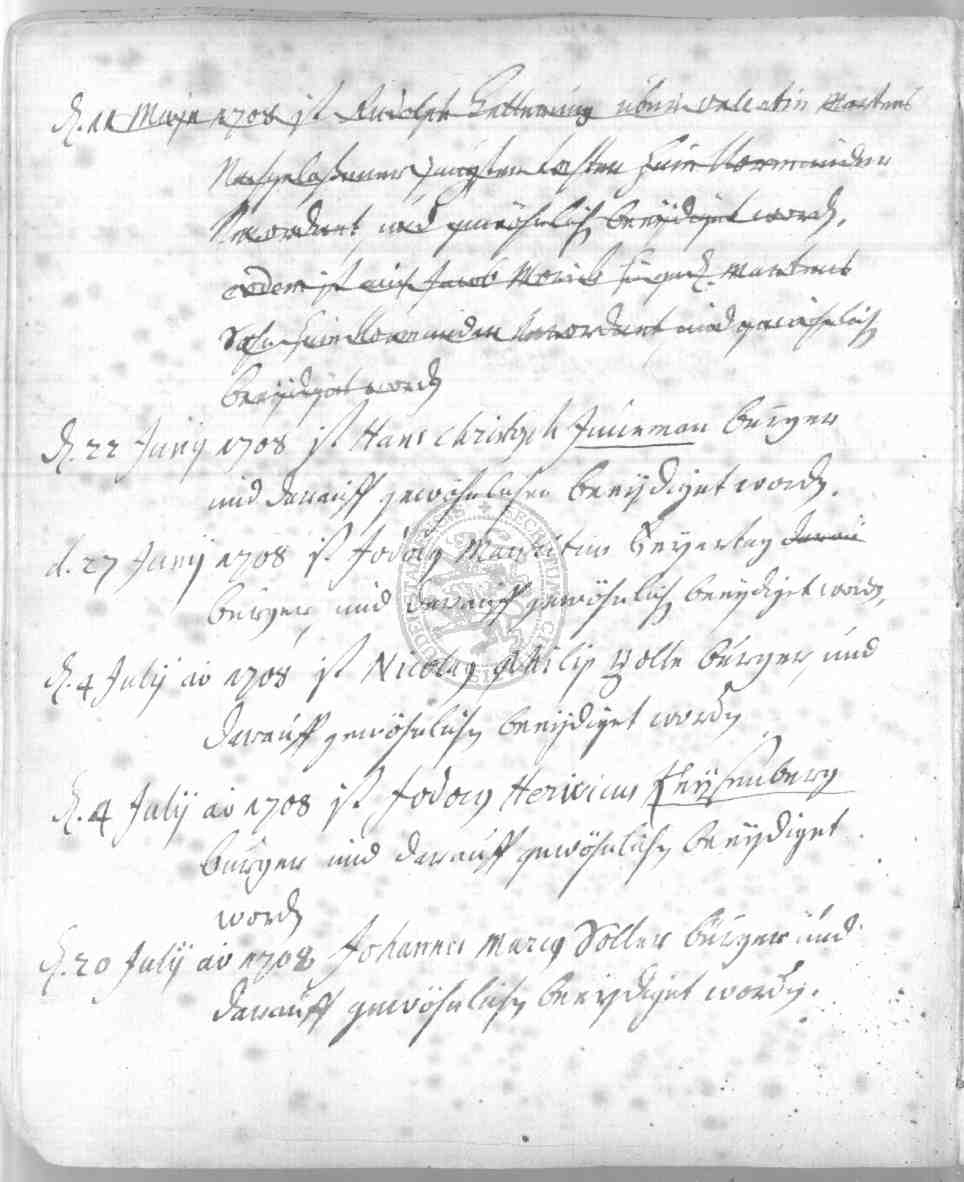 d. 11 Maji 1708 ist Rudolph über Valentin Martens
Nachgelaßener Jüngsten Vormünder
Verordnet und gewöhnlich beeydiget word.
eodem ist auch Jacob Martens
Sohn Vormünder Verordnet und gewöhnlich
beeydiget word
d. 22 Junij 1708 ist Hans Christoph Juneman bürger
und darauff gewöhnlichen beeydiget word.
d. 27 Junij 1708 ist Jodocy Mauritius Beyertag darau
bürger, und darauff gewöhnlich beeydiget word.
d. 4 Julij ao 1708 ist Nicolay Philip Bolle bürger, und
darauff gewöhnlich beeydiget word
d. 4 Julij ao 1708 ist Jodocy Henricus Leysenberg
bürger und darauff gewöhnlich beeydiget
word
d. 20 Julij ao 1708 Johannes Marcy Soller bürger und
darauff gewöhnlich beeydiget word.